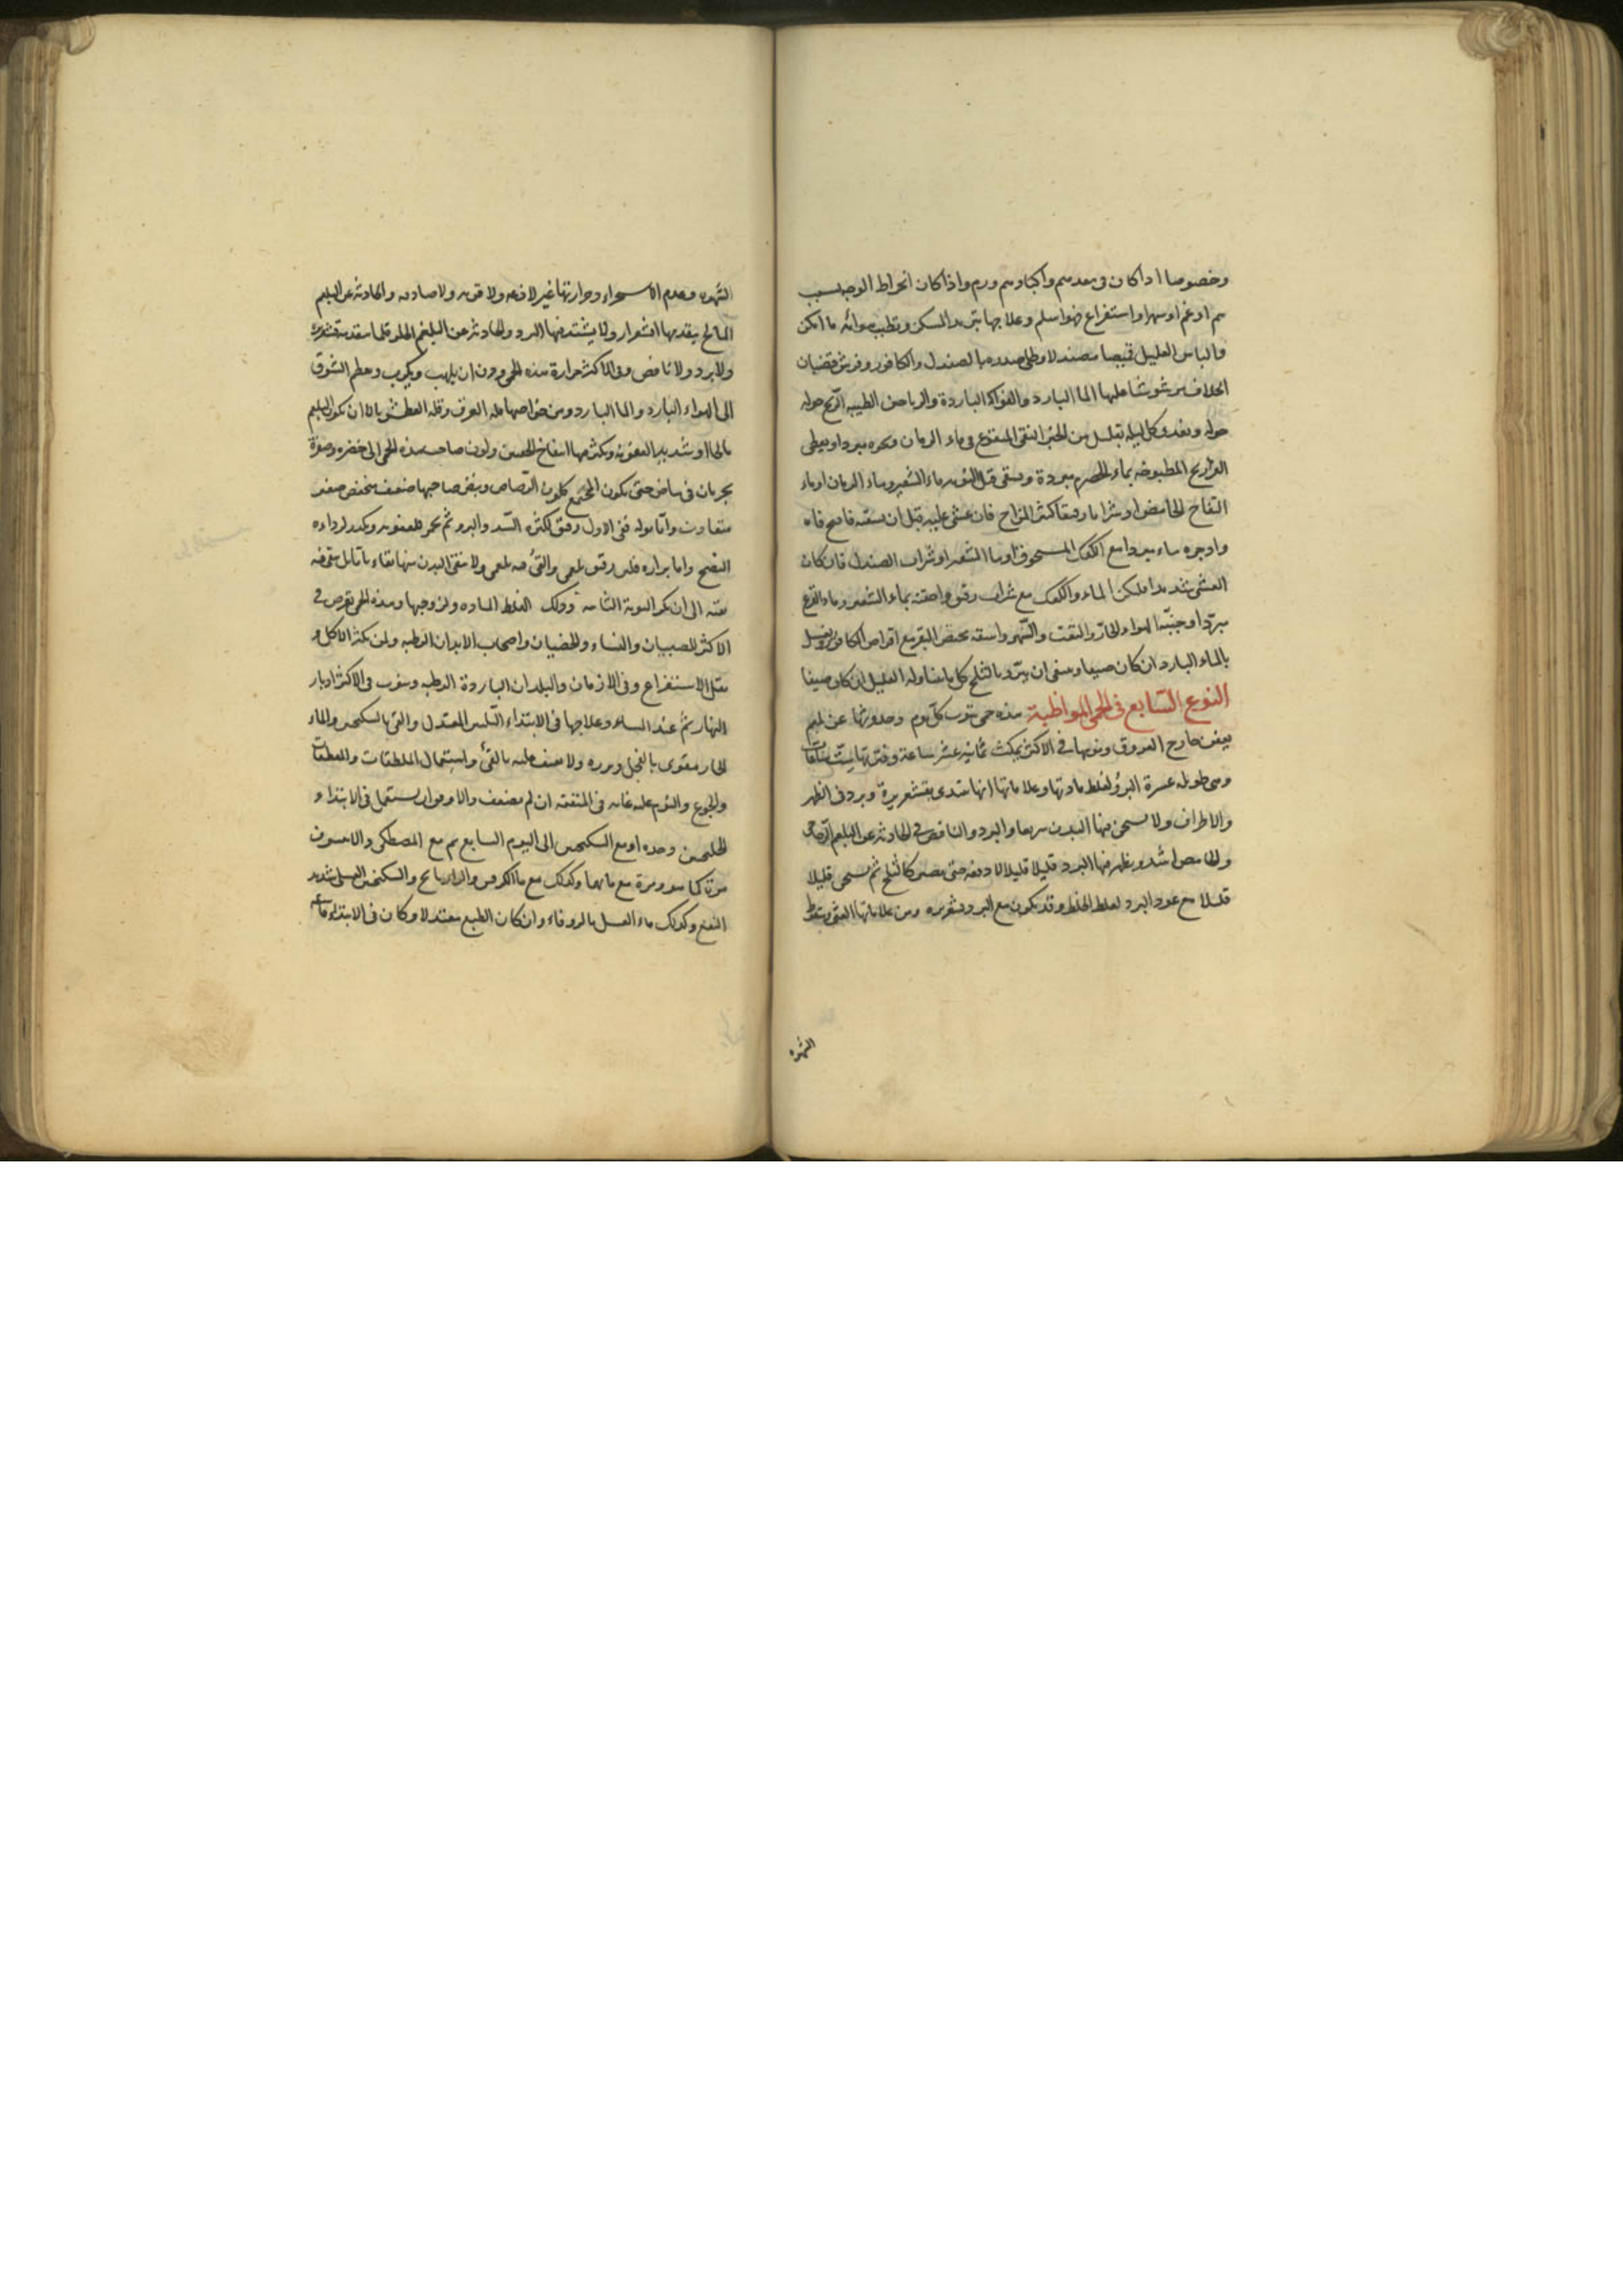 وخصوصا اذا كان فى معدهم واكبادهم ورم واذا كان انخراط الوجه بسبب
هم او غم او سهر او استفراغ فهو اسلم وعلاجها تبريد المسكن وتطييب هوائه ما امكن
والباس العليل قميصا مصندلا وطلى صدره بالصندل والكافور وفرش قضبان
الخلاف مرشوشا عليها الما البارد والفواكه البارده والرياحين الطيبه الريح حوله
حوله ويغذى كل ليله بقليل من الخبز النقى المنقوع فى ماء الرمان ونحوه مبردا ويعطى
الفراريج المطبوخه بماء الحصرم مبردة ويسقى قبل النوبه ماء الشعير وماء الرمان او ماء
التفاح الحامض او شرابا رقيقا كثير المزاج فان غشى عليه قبل ان يسقيه فافتح فاه
واوجره ماء مبردا مع الكعك المسحوق او ما الشعير او شراب الصندل فان كان
الغشى شديدا فليكن الماء والكعك مع شراب رقيق واحقنه بماء الشعير وماء القرع
مبردا وجنبه الهواء الحار والتعب والسهر واسقه مخيض البقر مع اقراص الكافور ويغسل
بالماء البارد ان كان صيفا وينبغى ان يبرد بالثلج كل ما يتناوله العليل ان كان صيفا
النوع السابع فى الحمى المواظبة هذه حمى تنوب كل يوم وحدوثها عن بلغم
يعفن خارج العروق ونوبها فى الاكثر يمكث ثمانيه عشر ساعة وفترتها ست ساعات
وهى طويله عسرة البرؤ لغلظ مادتها وعلاماتها انها تبتدى بقشعريرة وبرد فى الظهر
والاطراف ولا يسخن فيها البدن سريعا والبرد والنافض فى الحادثه عن البلغم الزجاجى
والحامض اشد ويظهر فيها البرد قليلا قليلا لا دفعه حتى يصير كالثلج ثم يسخن قليلا
قليلا مع عود البرد لغلظ الخلط وقد يكون مع البرد قشعريره ومن علاماتها الغشى وسقوط
الشهوه
الشهوه وعدم الاستمراء وحرارتها غير لاذعه ولا قويه ولا صادقه والحادثه عن البلغم
المالح يتقدمها اقشعرار ولا يشتد فيها البرد والحادثه عن البلغم الحلو قلما يتقدمه قشعريره
ولا برد ولا نافض وفى الاكثر حرارة هذه الحمى دون ان يلهب ويكرب وعظم الشوق
الى الهواء البارد والما البارد ومن خواصها قله العرق وقله العطش الا ان يكون البلغم
مالحا او شديد العفونه ويكثر فيها انتفاخ الجنبين ولون صاحب هذه الحمى الى خضره وصفرة
يجريان فى بياض حتى يكون المجتمع كلون الرصاص ونبض صاحبها ضعيف منخفض صغير
متفاوت واما بوله ففى الاول رقيق لكثره السدد والبرد ثم يحمر للعفونه ويكدر لرداءه
النضج واما برازه فلين رقيق بلغمى والقئ فيه بلغمى ولا ينقى البدن منها نقاء
الى ان تكر النوبة الثانيه وذلك لغلظ الماده ولزوجتها وهذه الحمى تعرض فى
الاكثر للصبيان والنساء والخصيان واصحاب الابدان الرطبه ولمن يكثر الاكل و
يقل الاستفراغ وفى الازمان والبلدان الباردة الرطبه وتنوب فى الاكثر ادبار
النهار ثم عند المساء وعلاجها فى الابتداء التليين المعتدل والقئ بالسكنجبين والماء
الحار مقوى بالفجل وبزره ولا يعنف عليه بالقئ واستعمال الملطفات والمقطعات
والجوع والنوم عليه غايه فى المنفعه ان لم يضعف والاوفق ان يستعمل فى الابتداء
الجلنجبين وحده او مع السكنجبين الى اليوم السابع ثم مع المصطكى والانيسون
مرة كما هو ومرة مع مائهما وكذلك مع ما الكرفس والرازيانج والسكنجبين العسلى شديد
النفع وكذلك ماء العسل بالزوفاء وان كان الطبع معتدلا وكان فى الابتداء